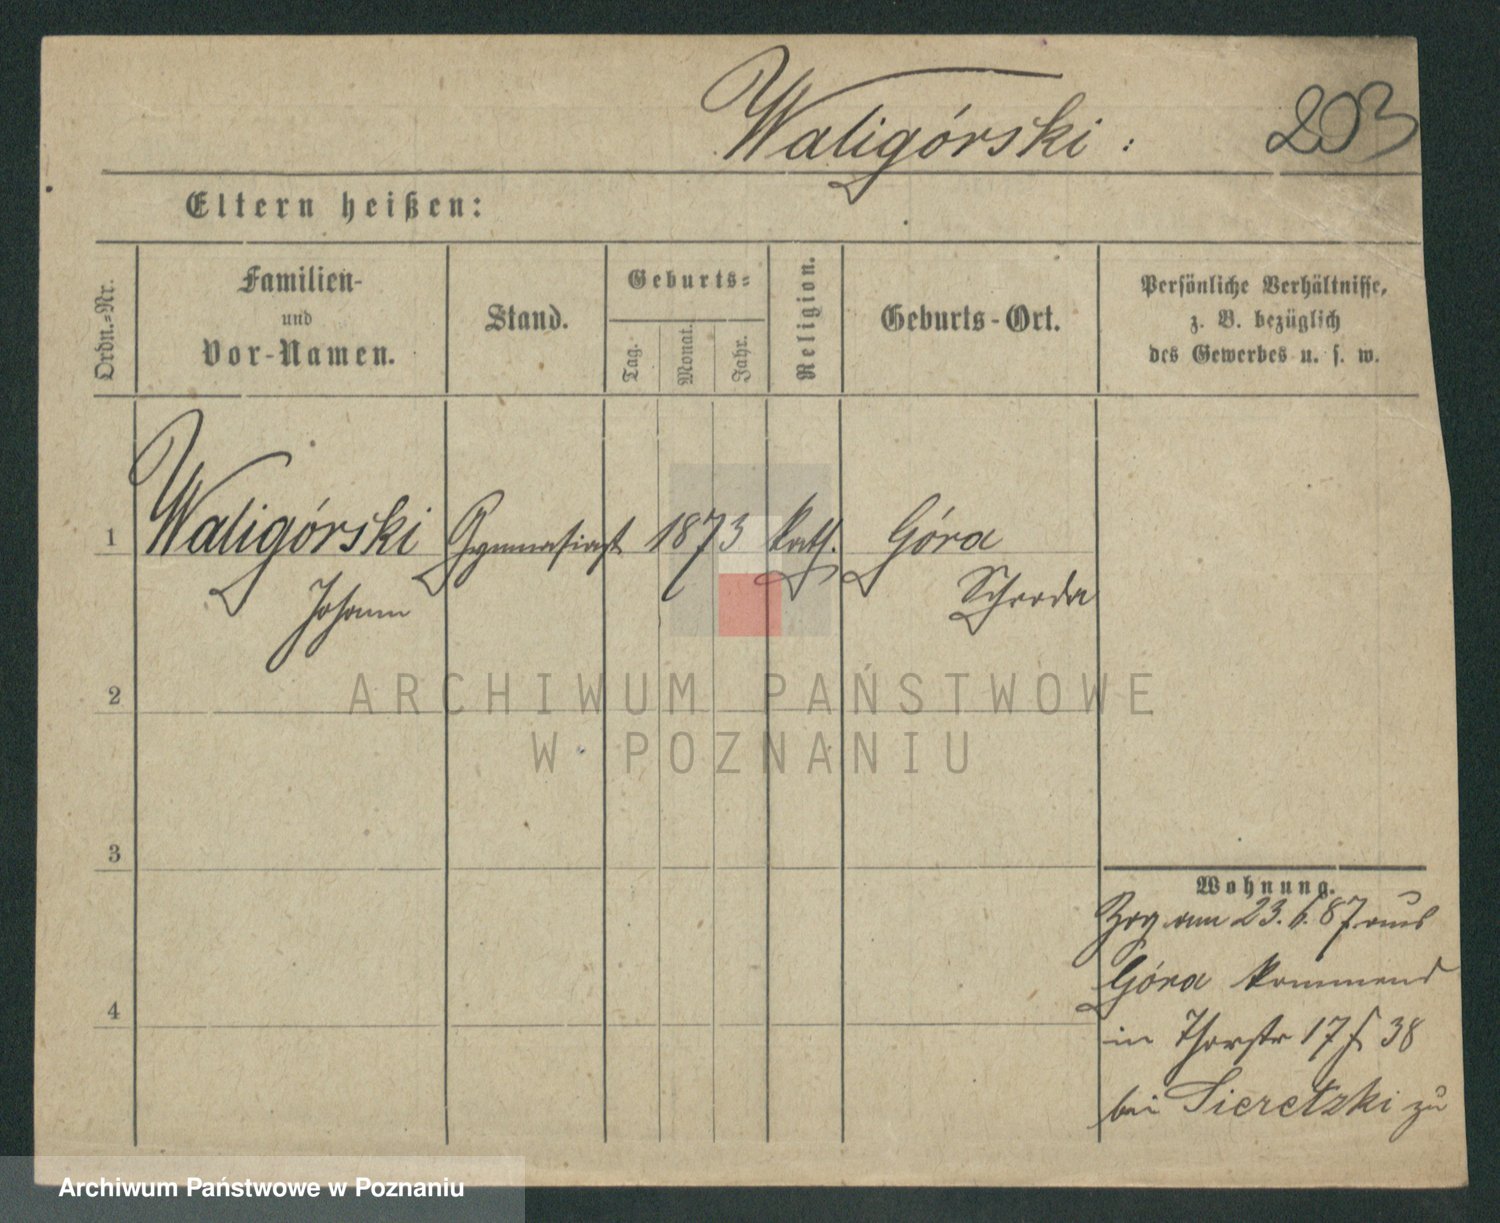 Waligórski : 203
Eltern heißen:
Ordn.=Nr.
Familien-
und
Vor-Namen.
Stand.
Geburts=
Tag.
Monat.
Jahr.
Religion.
Geburts-Ort.
Persönliche Verhältnisse,
z. B. bezüglich
des Gewerbes u. s. w.
1 Waligórski Gymnasiast 1873 kath. Góra
Johann Schroda
2
ARCHIWUM PAŃSTWOWE
W POZNANIU
3
Wohnung.
Zog am 23. 6. 87 aus
Góra kommend
in 17 38
bei Sieretzki zu
4
Archiwum Państwowe w Poznaniu